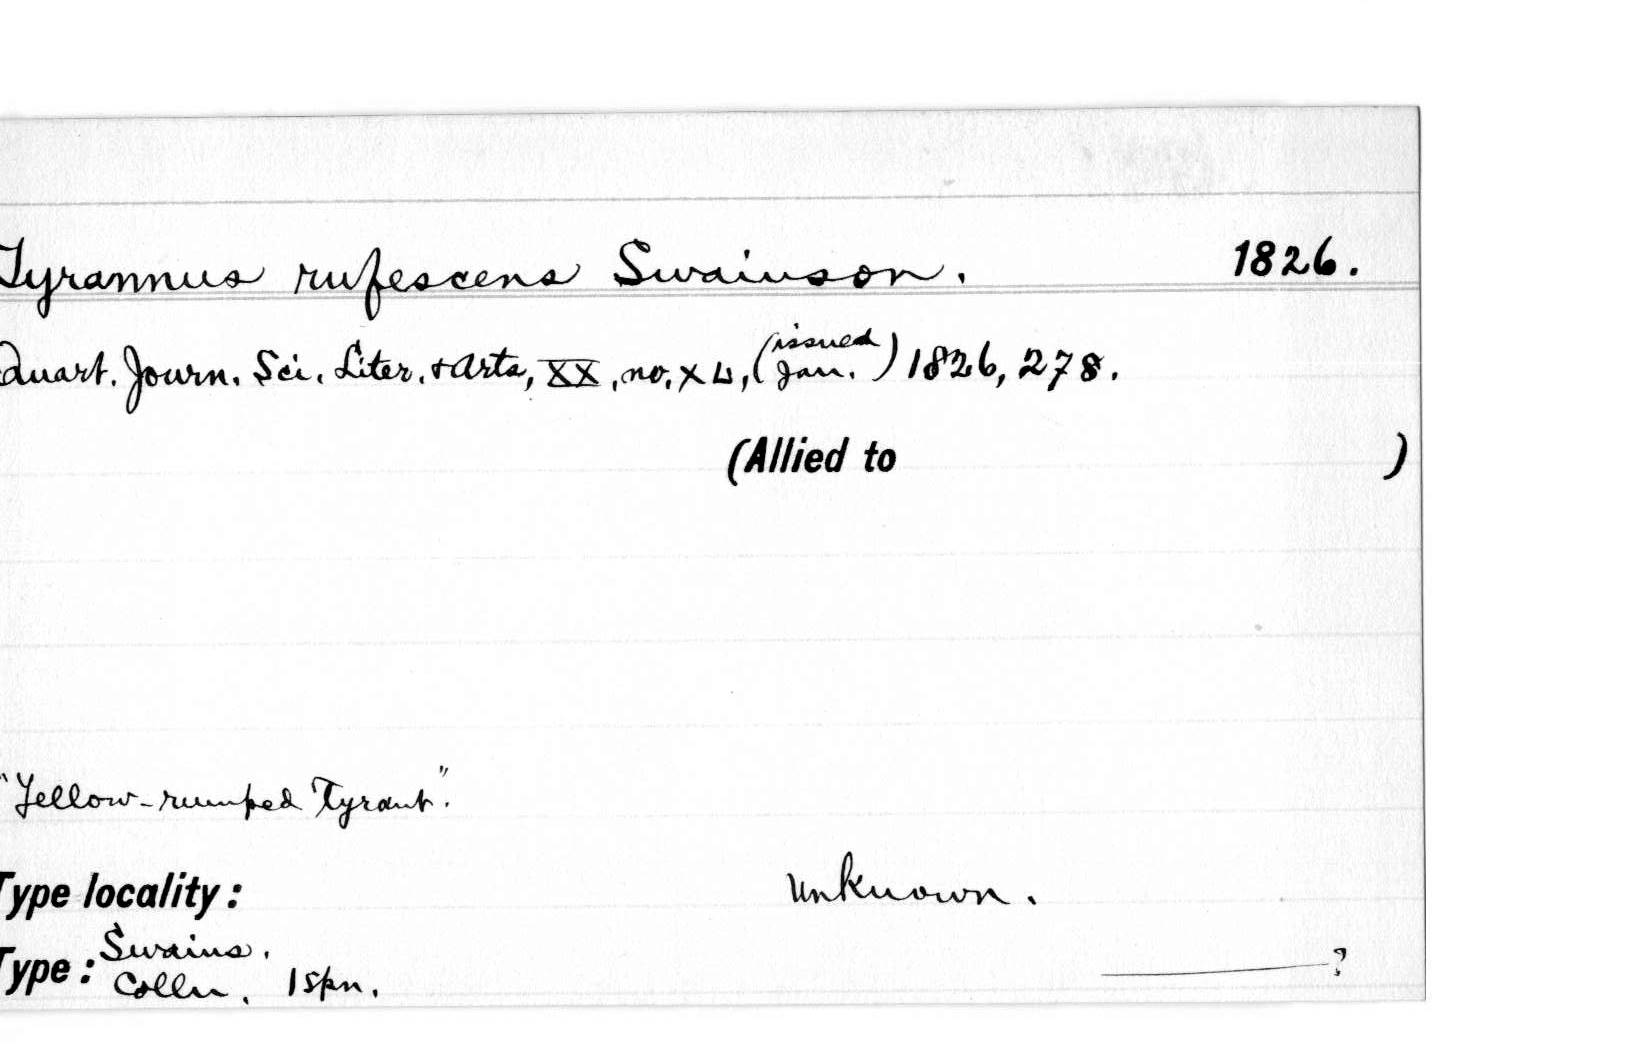 Tyrannus rufescens Swainson. 1826.
Quart. Journ. Sci. Liter. & Arts, XX, no. XL, (issued Jan.) 1826, 278.
(Allied to )
"Yellow-rumped Tyrant".
Type locality: Unknown.
Type: Swains. Colln. 1 spn. ?